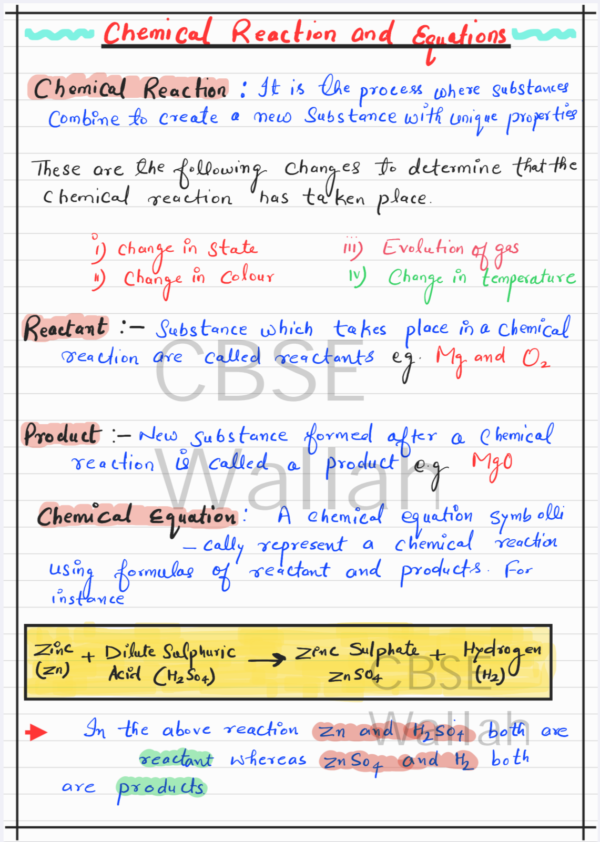 Chemical Reaction and Equations
Chemical Reaction : It is the process where substances
Combine to create a new Substance with unique properties
These are the following changes to determine that the
Chemical reaction has taken place.
i) Change in State
iii) Evolution of gas
ii) Change in Colour
iv) Change in temperature
Reactant :- Substance which takes place in a chemical
reaction are called reactants eg. Mg and O₂
CBSE
Product :- New substance formed after a chemical
reaction is called a product eg MgO
Wallah
Chemical Equation : A chemical equation symbolli
- cally represent a chemical reaction
using formulas of reactant and products. For
instance
Zinc + Dilute Sulphuric → Zinc Sulphate + Hydrogen
(Zn) Acid (H₂SO₄) ZnSO₄ (H₂)
CBSE
Wallah
In the above reaction Zn and H₂SO₄ both are
reactant whereas ZnSO₄ and H₂ both
are products